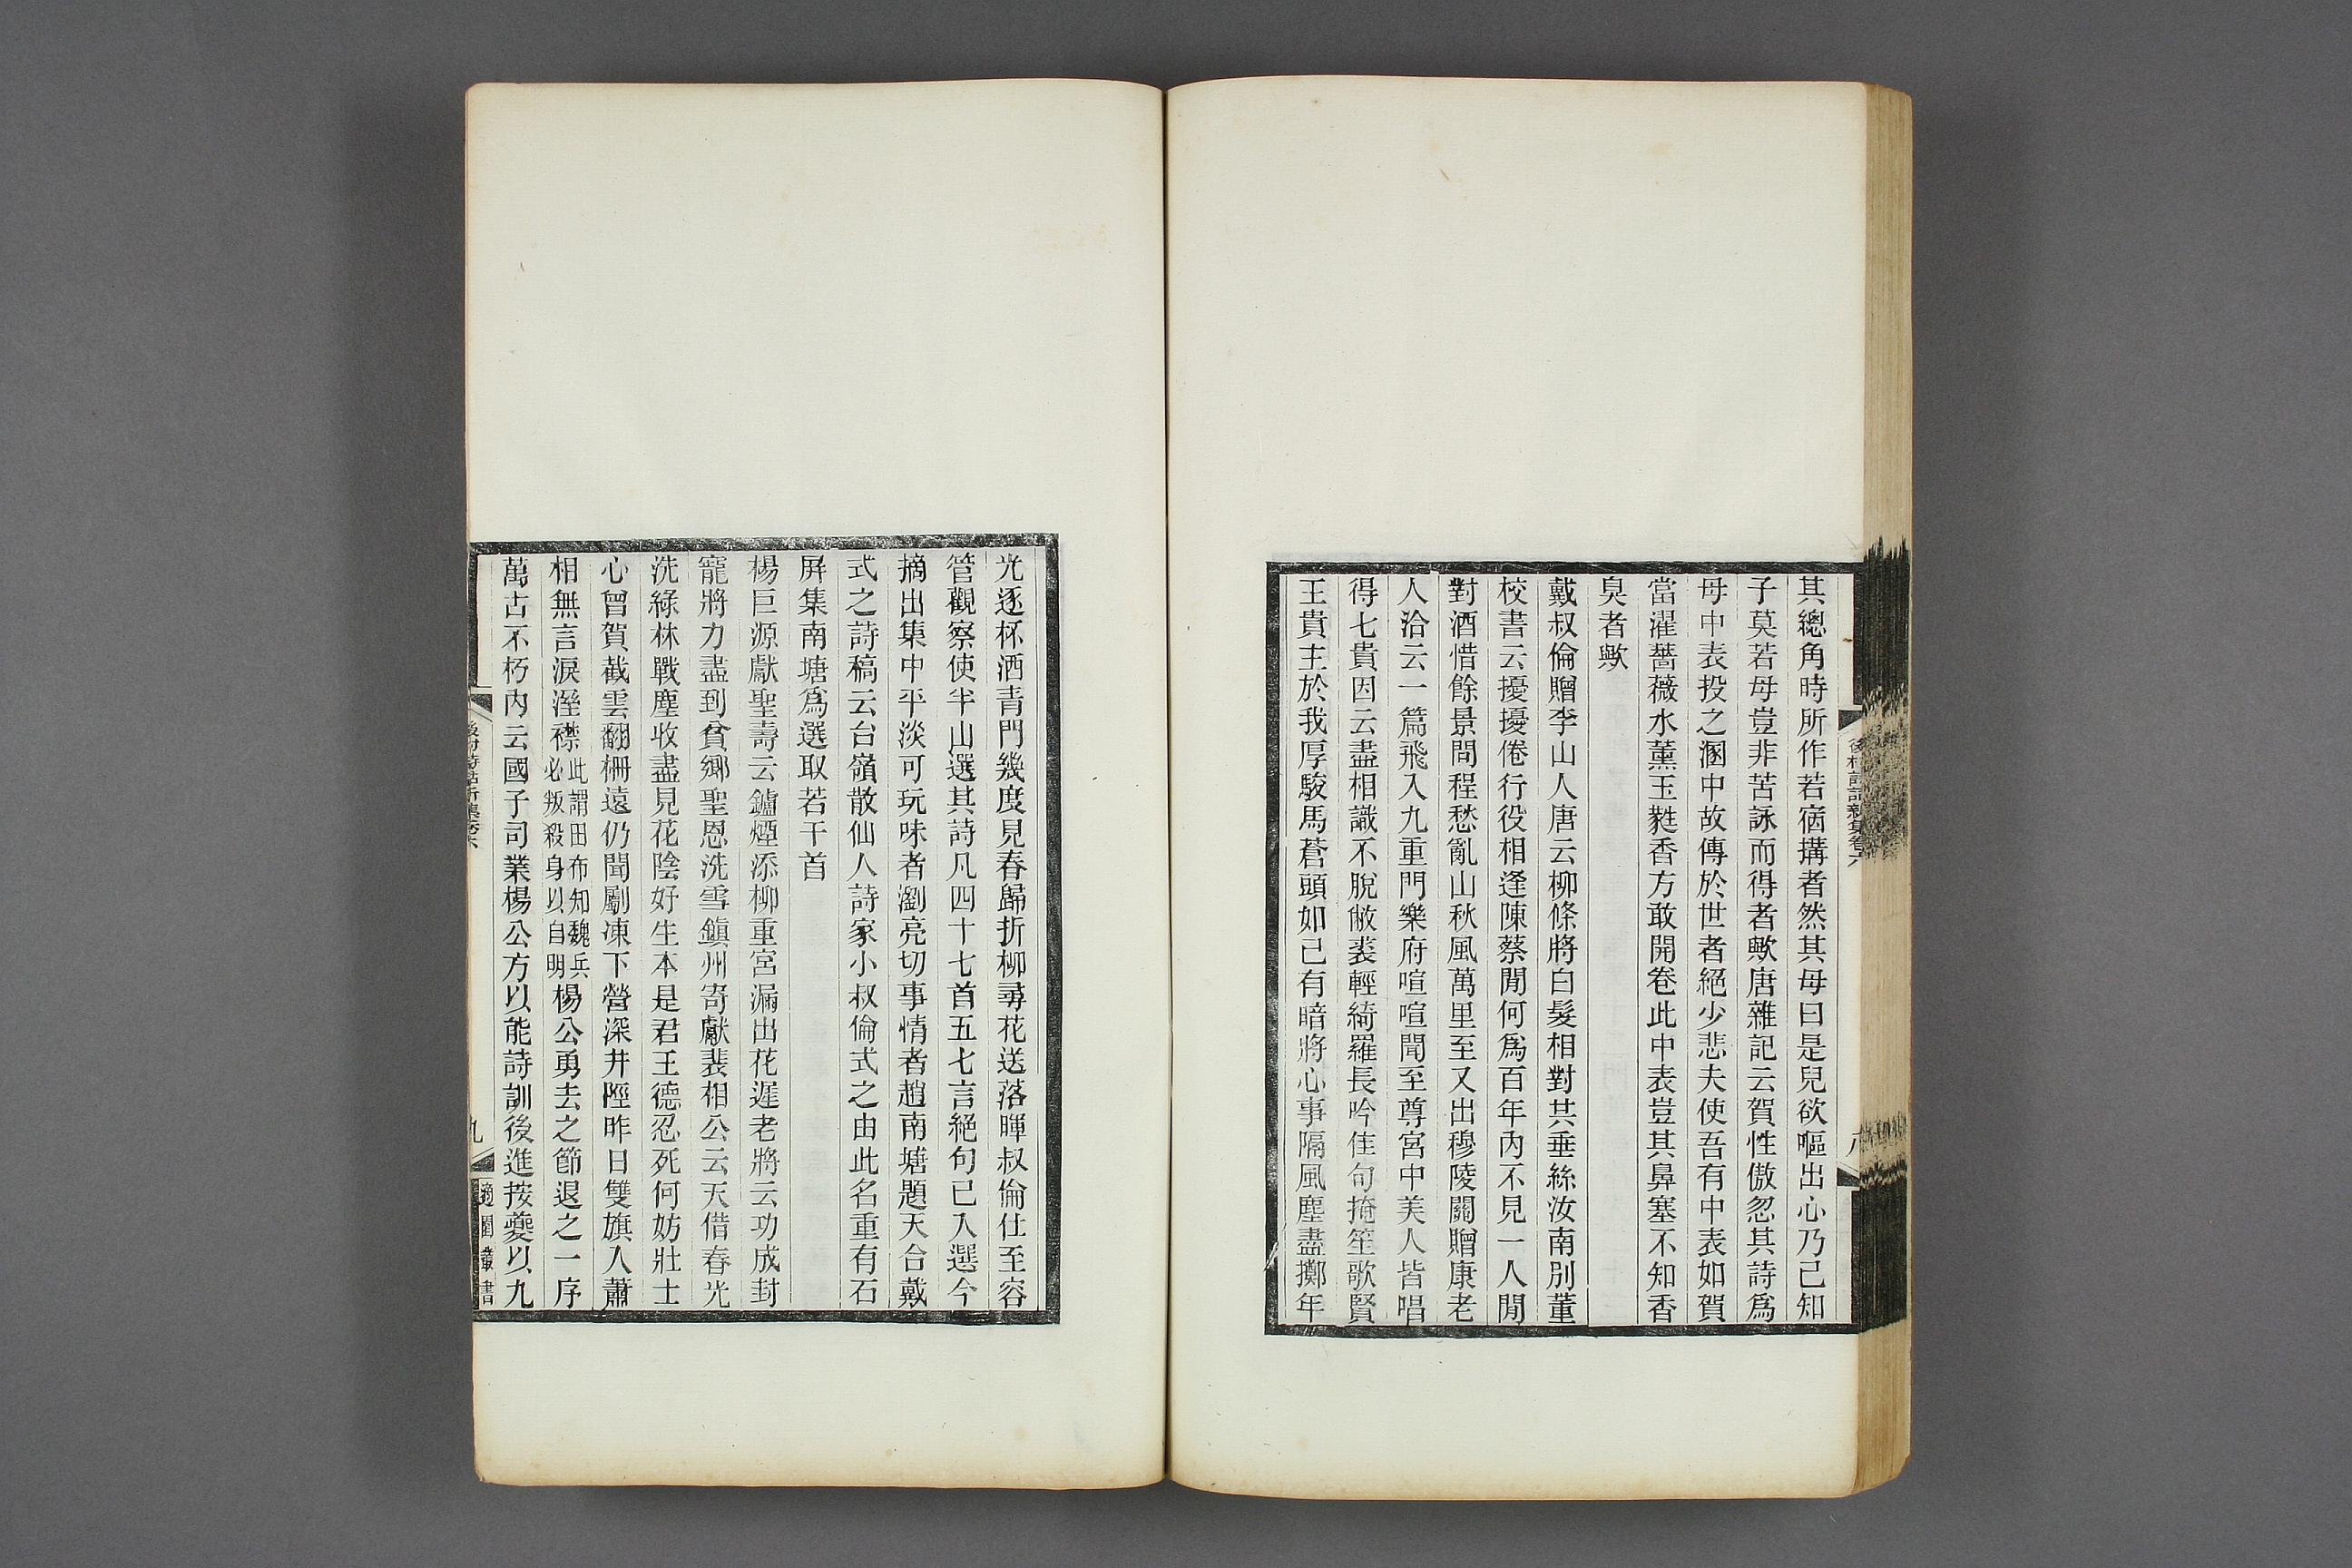 其總角時所作若宿搆者然其母曰是兒欲嘔出心乃己知
子莫若母豈非苦詠而得者歟唐雜記云賀性傲忽其詩爲
母中表投之溷中故傳於世者絕少悲夫使吾有中表如賀
當濯薔薇水薰玉蕤香方敢開卷此中表豈其鼻塞不知香
臭者歟
戴叔倫贈李山人唐云柳條將白髮相對共垂絲汝南別董
校書云擾擾倦行役相逢陳蔡閒何爲百年內不見一人閒
對酒惜餘景問程愁亂山秋風萬里至又出穆陵關贈康老
人洽云一篇飛入九重門樂府喧喧聞至尊宮中美人皆唱
得七貴因云盡相識不脫敝裘輕綺羅長吟佳句掩笙歌賢
王貴主於我厚駿馬蒼頭如己有暗將心事隔風塵盡擲年
後村詩話新集卷六
八
光逐杯酒青門幾度見春歸折柳尋花送落暉叔倫仕至容
管觀察使半山選其詩凡四十七首五七言絕句已入選今
摘出集中平淡可玩味者瀏亮切事情者趙南塘題天台戴
式之詩稿云台嶺散仙人詩家小叔倫式之由此名重有石
屏集南塘爲選取若干首
楊巨源獻聖壽云鑪煙添柳重宮漏出花遲老將云功成封
寵將力盡到貧鄉聖恩洗雪鎭州寄獻裴相公云天借春光
洗綠林戰塵收盡見花陰好生本是君王德忍死何妨壯士
心曾賀截雲翻柵遠仍聞劚凍下營深井陘昨日雙旗入蕭
相無言淚溼襟此謂田布知魏兵必叛殺身以自明楊公勇去之節退之一序
萬古不朽內云國子司業楊公方以能詩訓後進按夔以九
後村詩話新集卷六
九
適園叢書